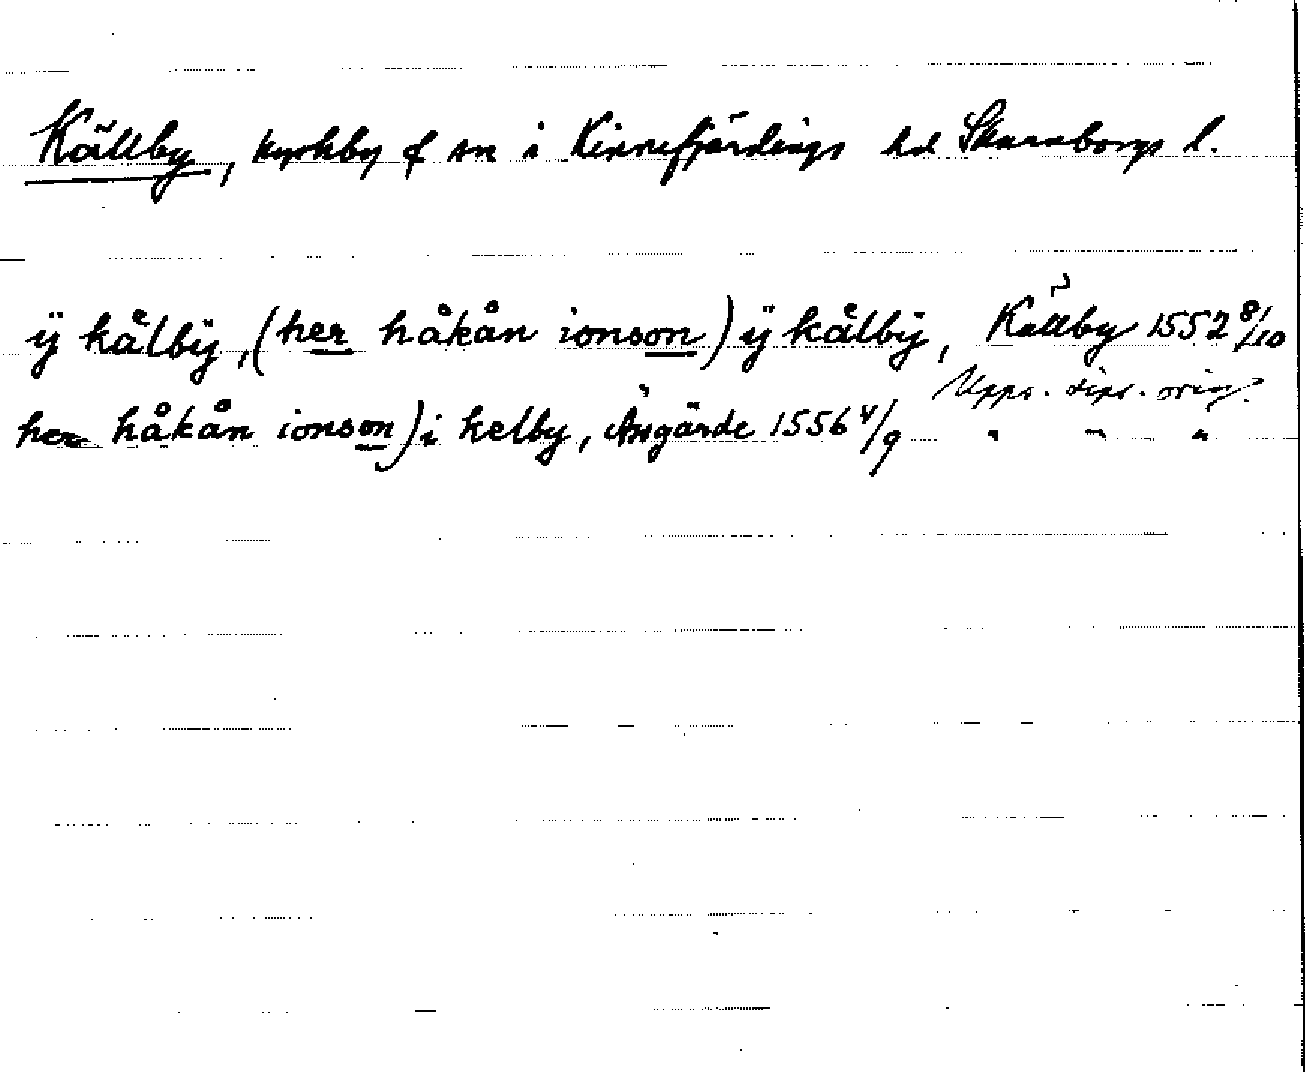 Källby, kyrkby o sn i Kinnefjärdings hd Skaraborgs l.
ÿ kålbÿ, (her håkån ionson) ÿ kålbÿ, Källby 1552 8/10
Upps. dipl. orig.
her håkån ionson) i kelby, Ängärde 1556 4/9 " " "